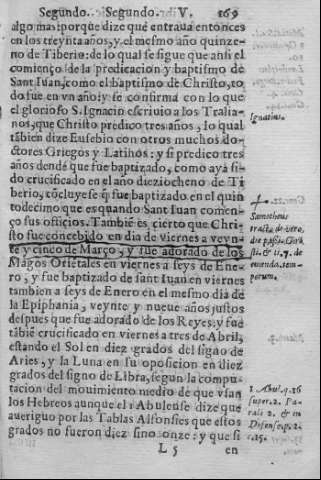 Segundo. Segundo. V. 169
algo mas: porque dize que entraua entonces
en los treynta años, y el mesmo año quinze-
no de Tiberio: de lo qual se sigue que ansi el
comienço de la predicacion y baptismo de
Sant Iuan, como el baptismo de Christo, to
do fue en vn año: y se confirma con lo que
el glorioso S. Ignacio escriuio a los Tralia-
nos, que Christo predico tres años, lo qual
tābien dize Eusebio con otros muchos do-
ctores Griegos y Latinos: y si predico tres
años dende que fue baptizado, como aya si-
do crucificado en el año dieziocheno de Ti
berio, cōcluyese q̃ fue baptizado en el quin
todecimo que es quando Sant Iuan comen-
ço sus officios. Tambiē es cierto que Chri-
sto fue concebido en dia de viernes a veyn-
te y cinco de Março, y fue adorado de los
Magos Oriētales en viernes a seys de Ene-
ro, y fue baptizado de sant Iuan en viernes
tambien a seys de Enero en el mesmo dia de
la Epiphania, veynte y nueue años justos
despues que fue adorado de los Reyes: y fue
tābiē crucificado en viernes a tres de Abril,
estando el Sol en diez grados del signo de
Aries, y la Luna en su oposicion en diez
grados del signo de Libra, segun la compu-
tacion del mouimiento medio de que vsan
los Hebreos aunque el 1 Abulense dize que
aueriguo por las Tablas Alfonsies que estos
grados no fueron diez sino onze: y que si
L 5 en
Ignatius.
1 Abul. q. 26
super. 2. Pa-
rali. 2. & in
Defensio p. 2.
c. 25.